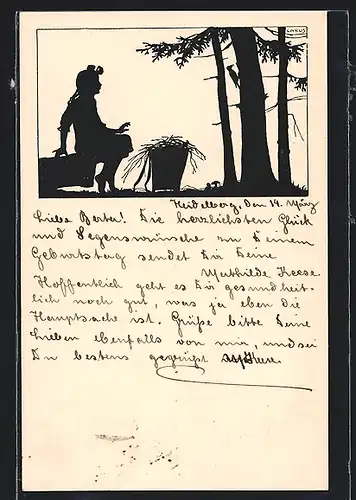 CAKUS
Heidelberg, den 14. März
Liebe Berta! Die herzlichsten Glück
und Segenswünsche zu Deinem
Geburtstag sendet Dir Deine
Mathilde Keese.
Hoffentlich geht es Dir gesundheit-
lich noch gut, was ja eben die
Hauptsache ist. Grüße bitte Deine
Lieben ebenfalls von mir, und sei
Du bestens gegrüßt